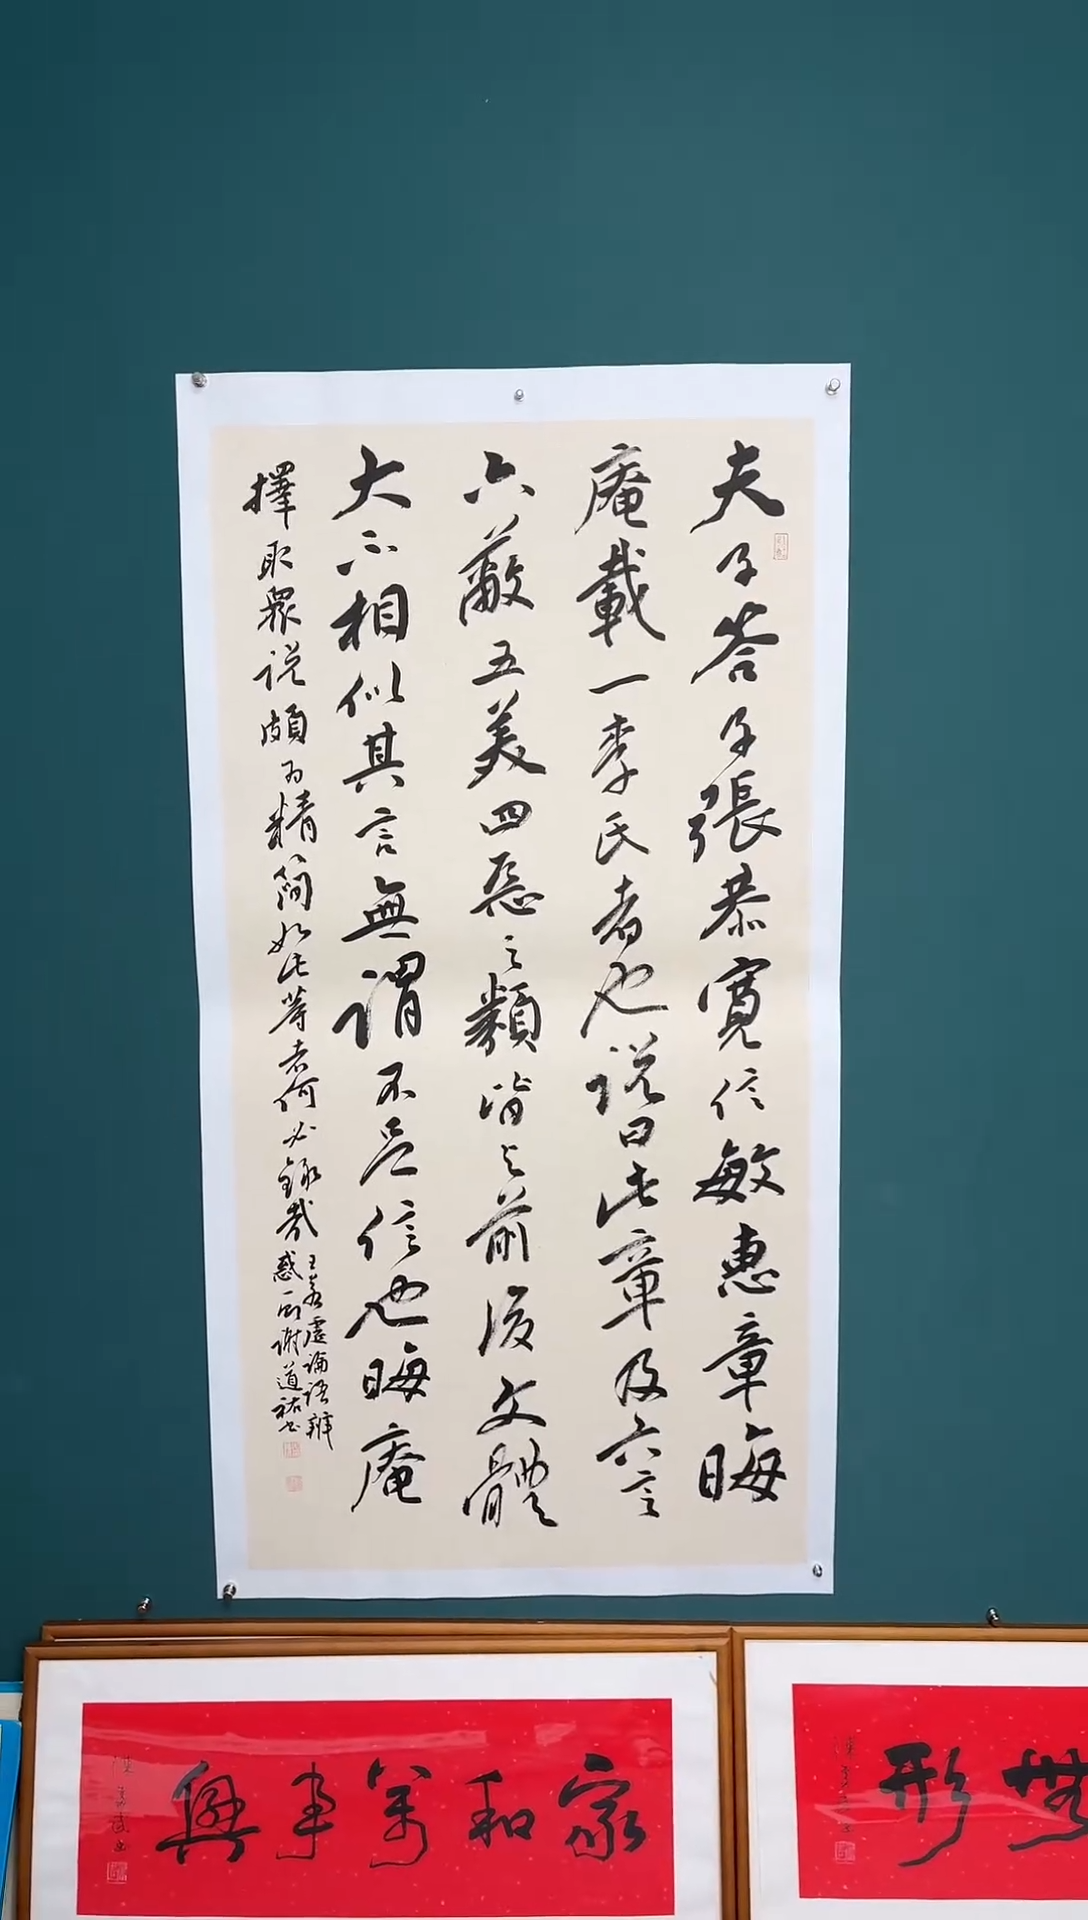 夫子答子張恭寬信敏惠章晦
庵載一李氏者也说曰此章及六言
六蔽五美四惡之類皆与前後文體
大不相似其言無謂不足信也晦庵
擇取眾说頗为精简如此等者何必録哉
王若虛論語辨
惑一则谢道祐书
家和萬事興
無形